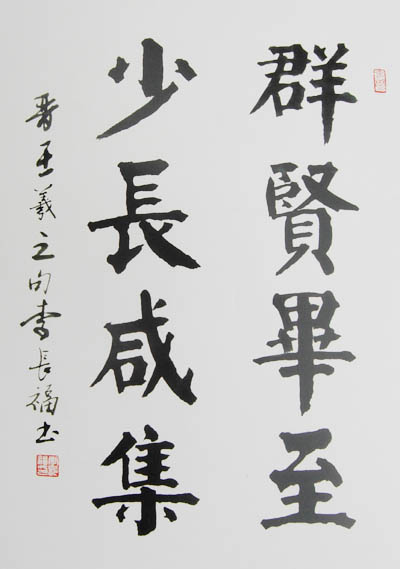 群賢畢至
少長咸集
晉王羲之句李長福书